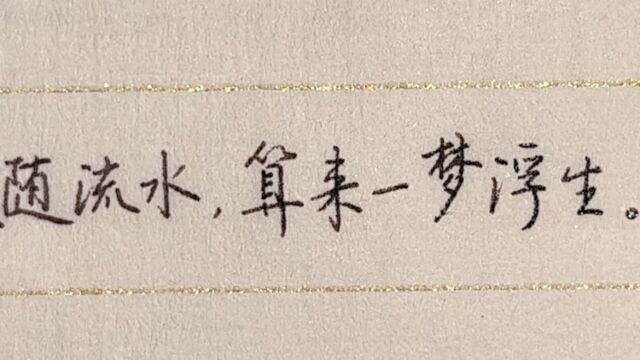 随流水,算来一梦浮生。